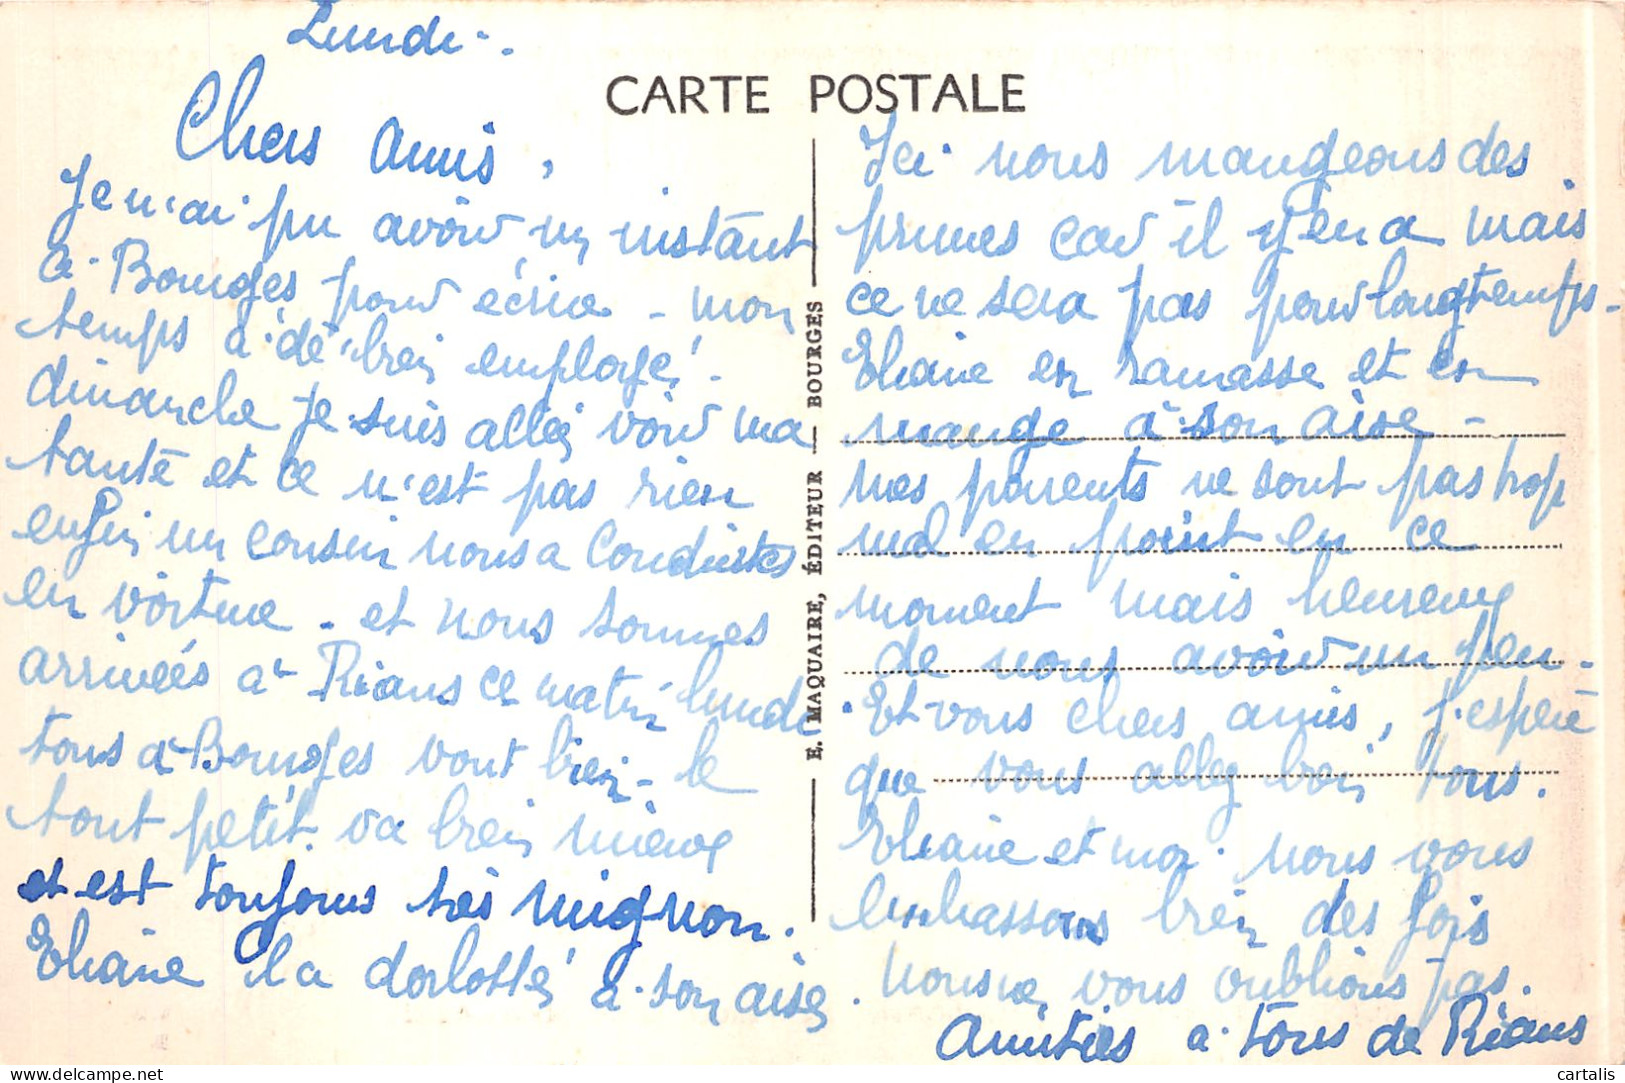 Lundi.
CARTE POSTALE
Chers Amis,
Je n'ai pu avoir un instant
à Bourges pour écrire - mon
temps a été bien employé -
dimanche je suis allée voir ma
tante et ce n'est pas rien
enfin un cousin nous a conduites
en voiture - et nous sommes
arrivées à Rians ce matin lundi
tous à Bourges vont bien - le
tout petit va bien mieux
et est toujours très mignon.
Eliane l'a dorlotté à son aise.
E. MAQUAIRE, ÉDITEUR — BOURGES
Ici nous mangeons des
prunes car il y en a mais
ce ne sera pas pour longtemps.
Eliane en ramasse et en
mange à son aise -
mes parents ne sont pas trop
mal en point en ce
moment mais heureux
de nous avoir un peu.
Et vous chers amis, j'espère
que vous allez bien tous.
Eliane et moi nous vous
embrassons bien des fois
nous ne vous oublions pas.
Amitiés à tous de Rians
cartalis
delcampe.net